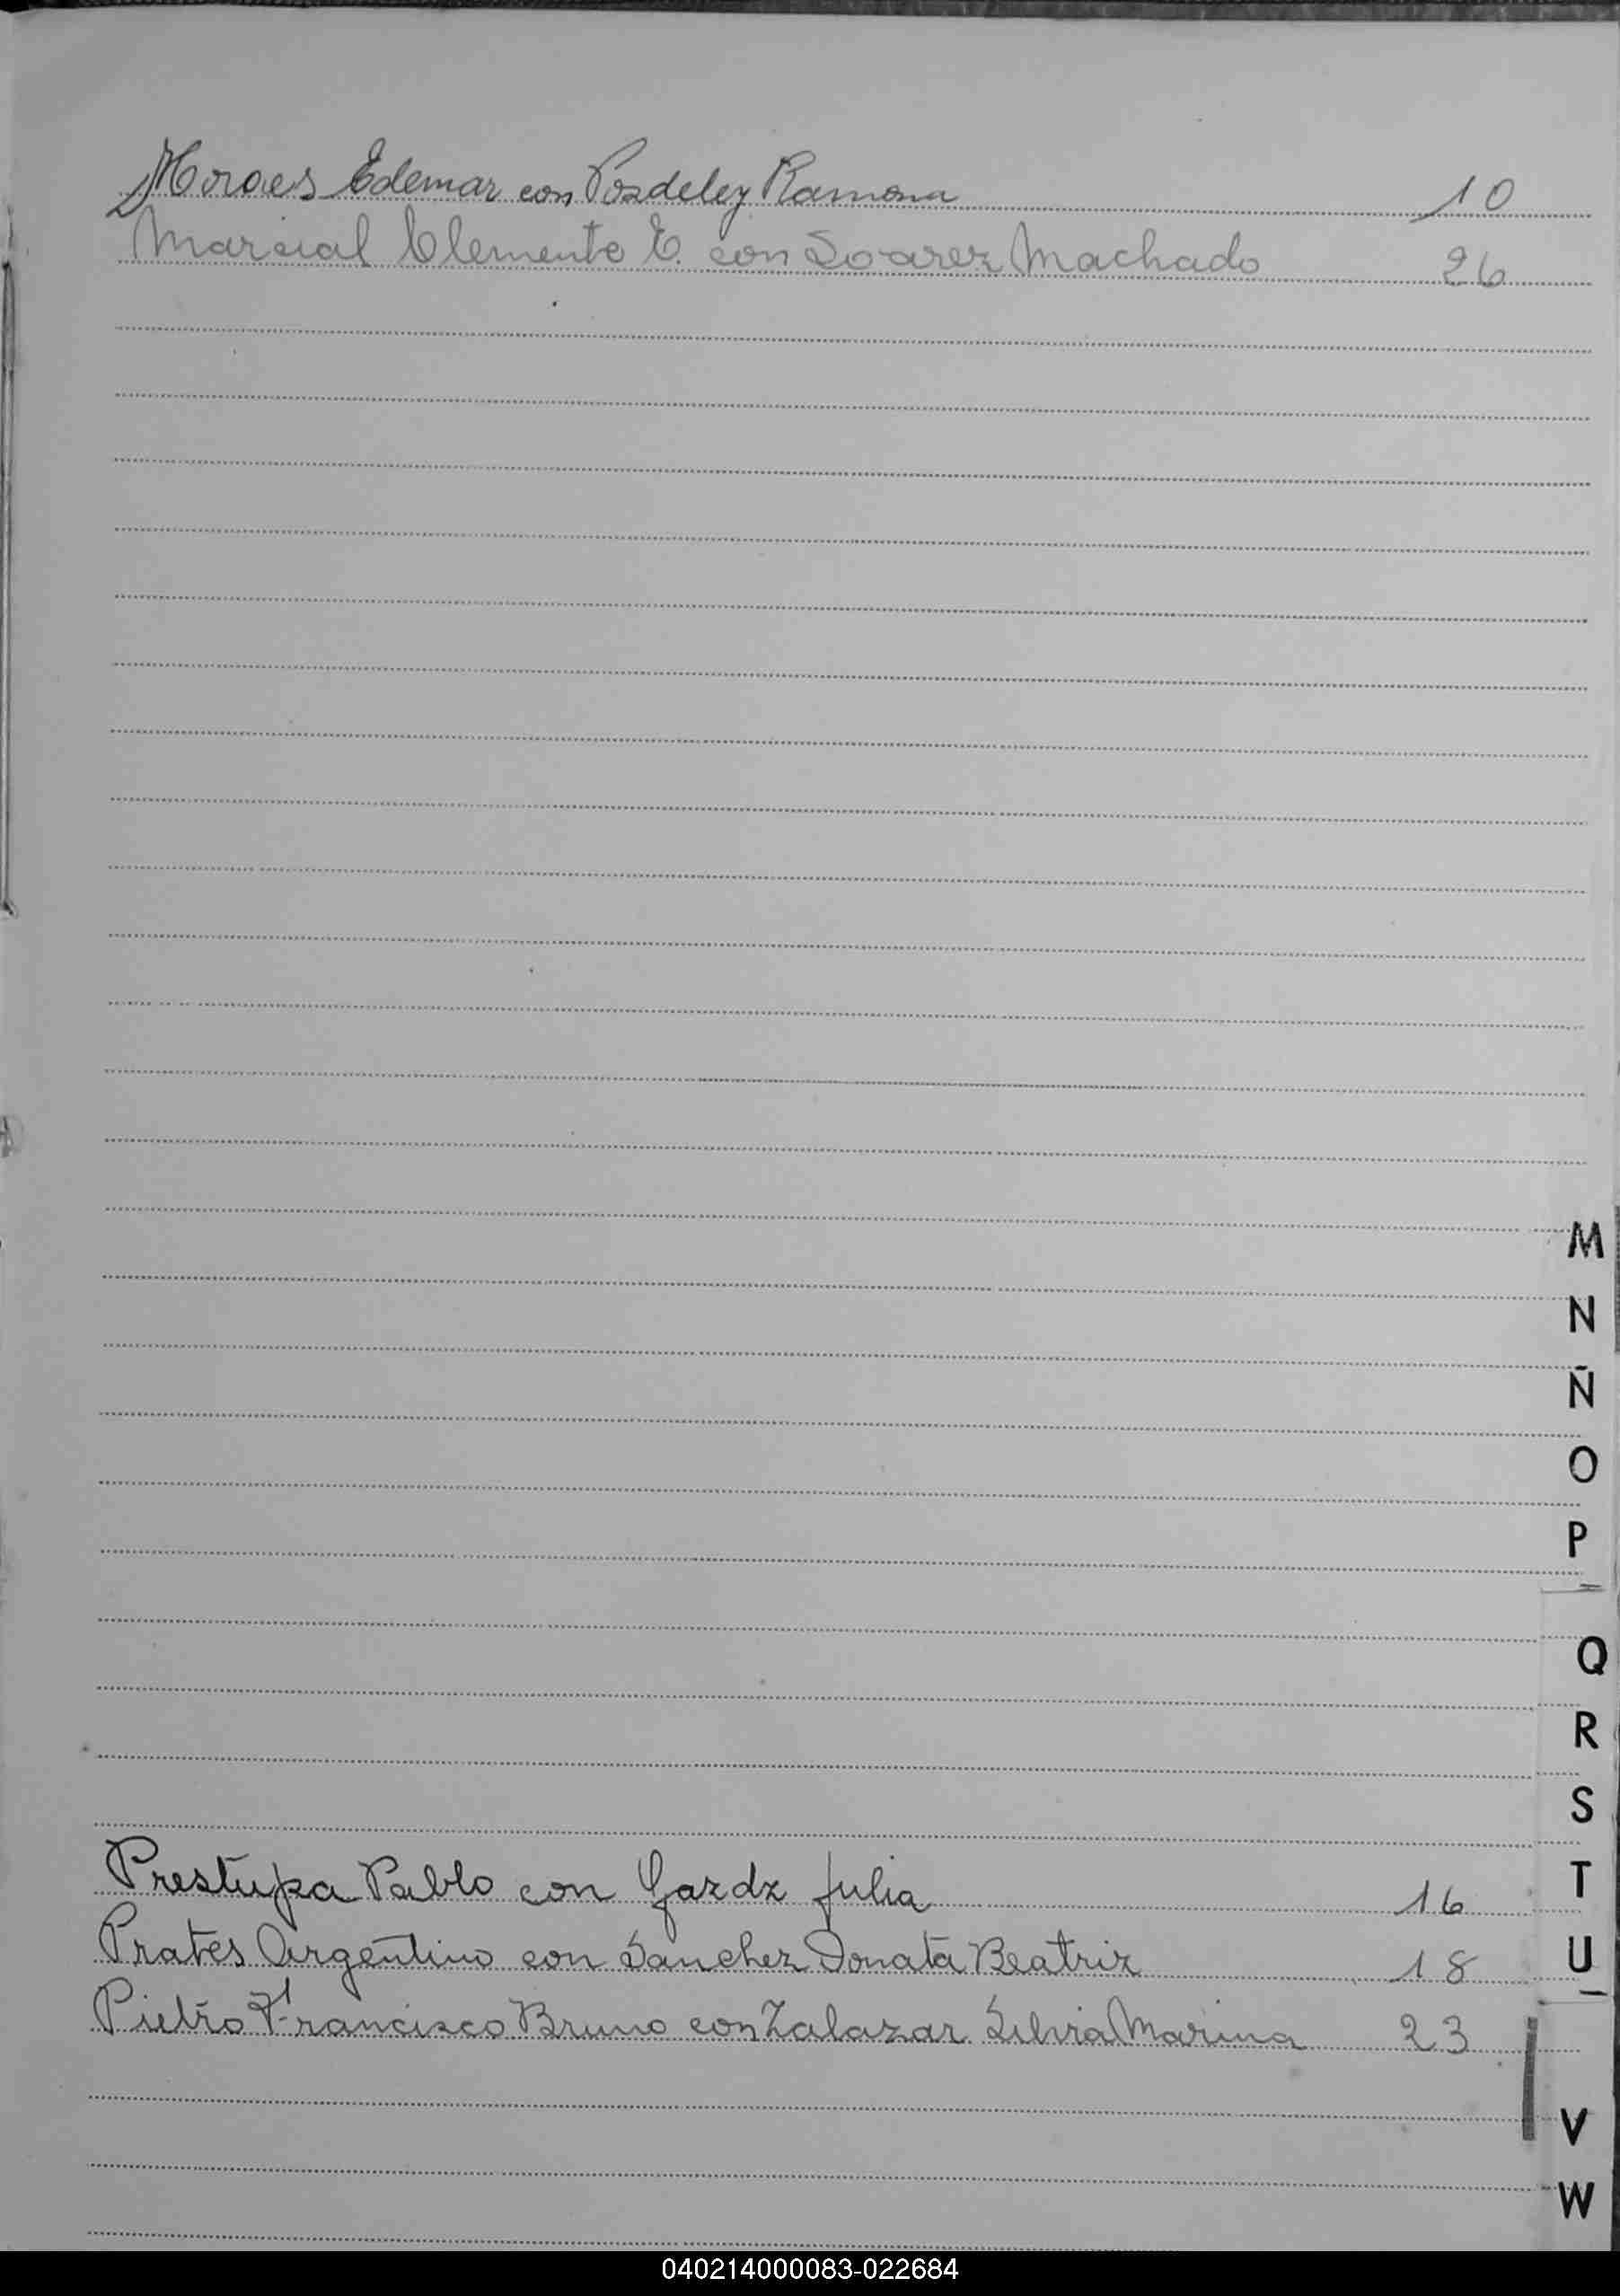 Moraes Edemar con Pozdeley Ramona 10
Marcial Clemente E. con Soarez Machado 26
M
N
Ñ
O
P
Q
R
S
T
U
V
W
Prestupa Pablo con Gazdz Julia 16
Prates Argentino con Sanchez Donata Beatriz 18
Pietro Francisco Bruno con Zalazar Silvia Marina 23
040214000083-022684